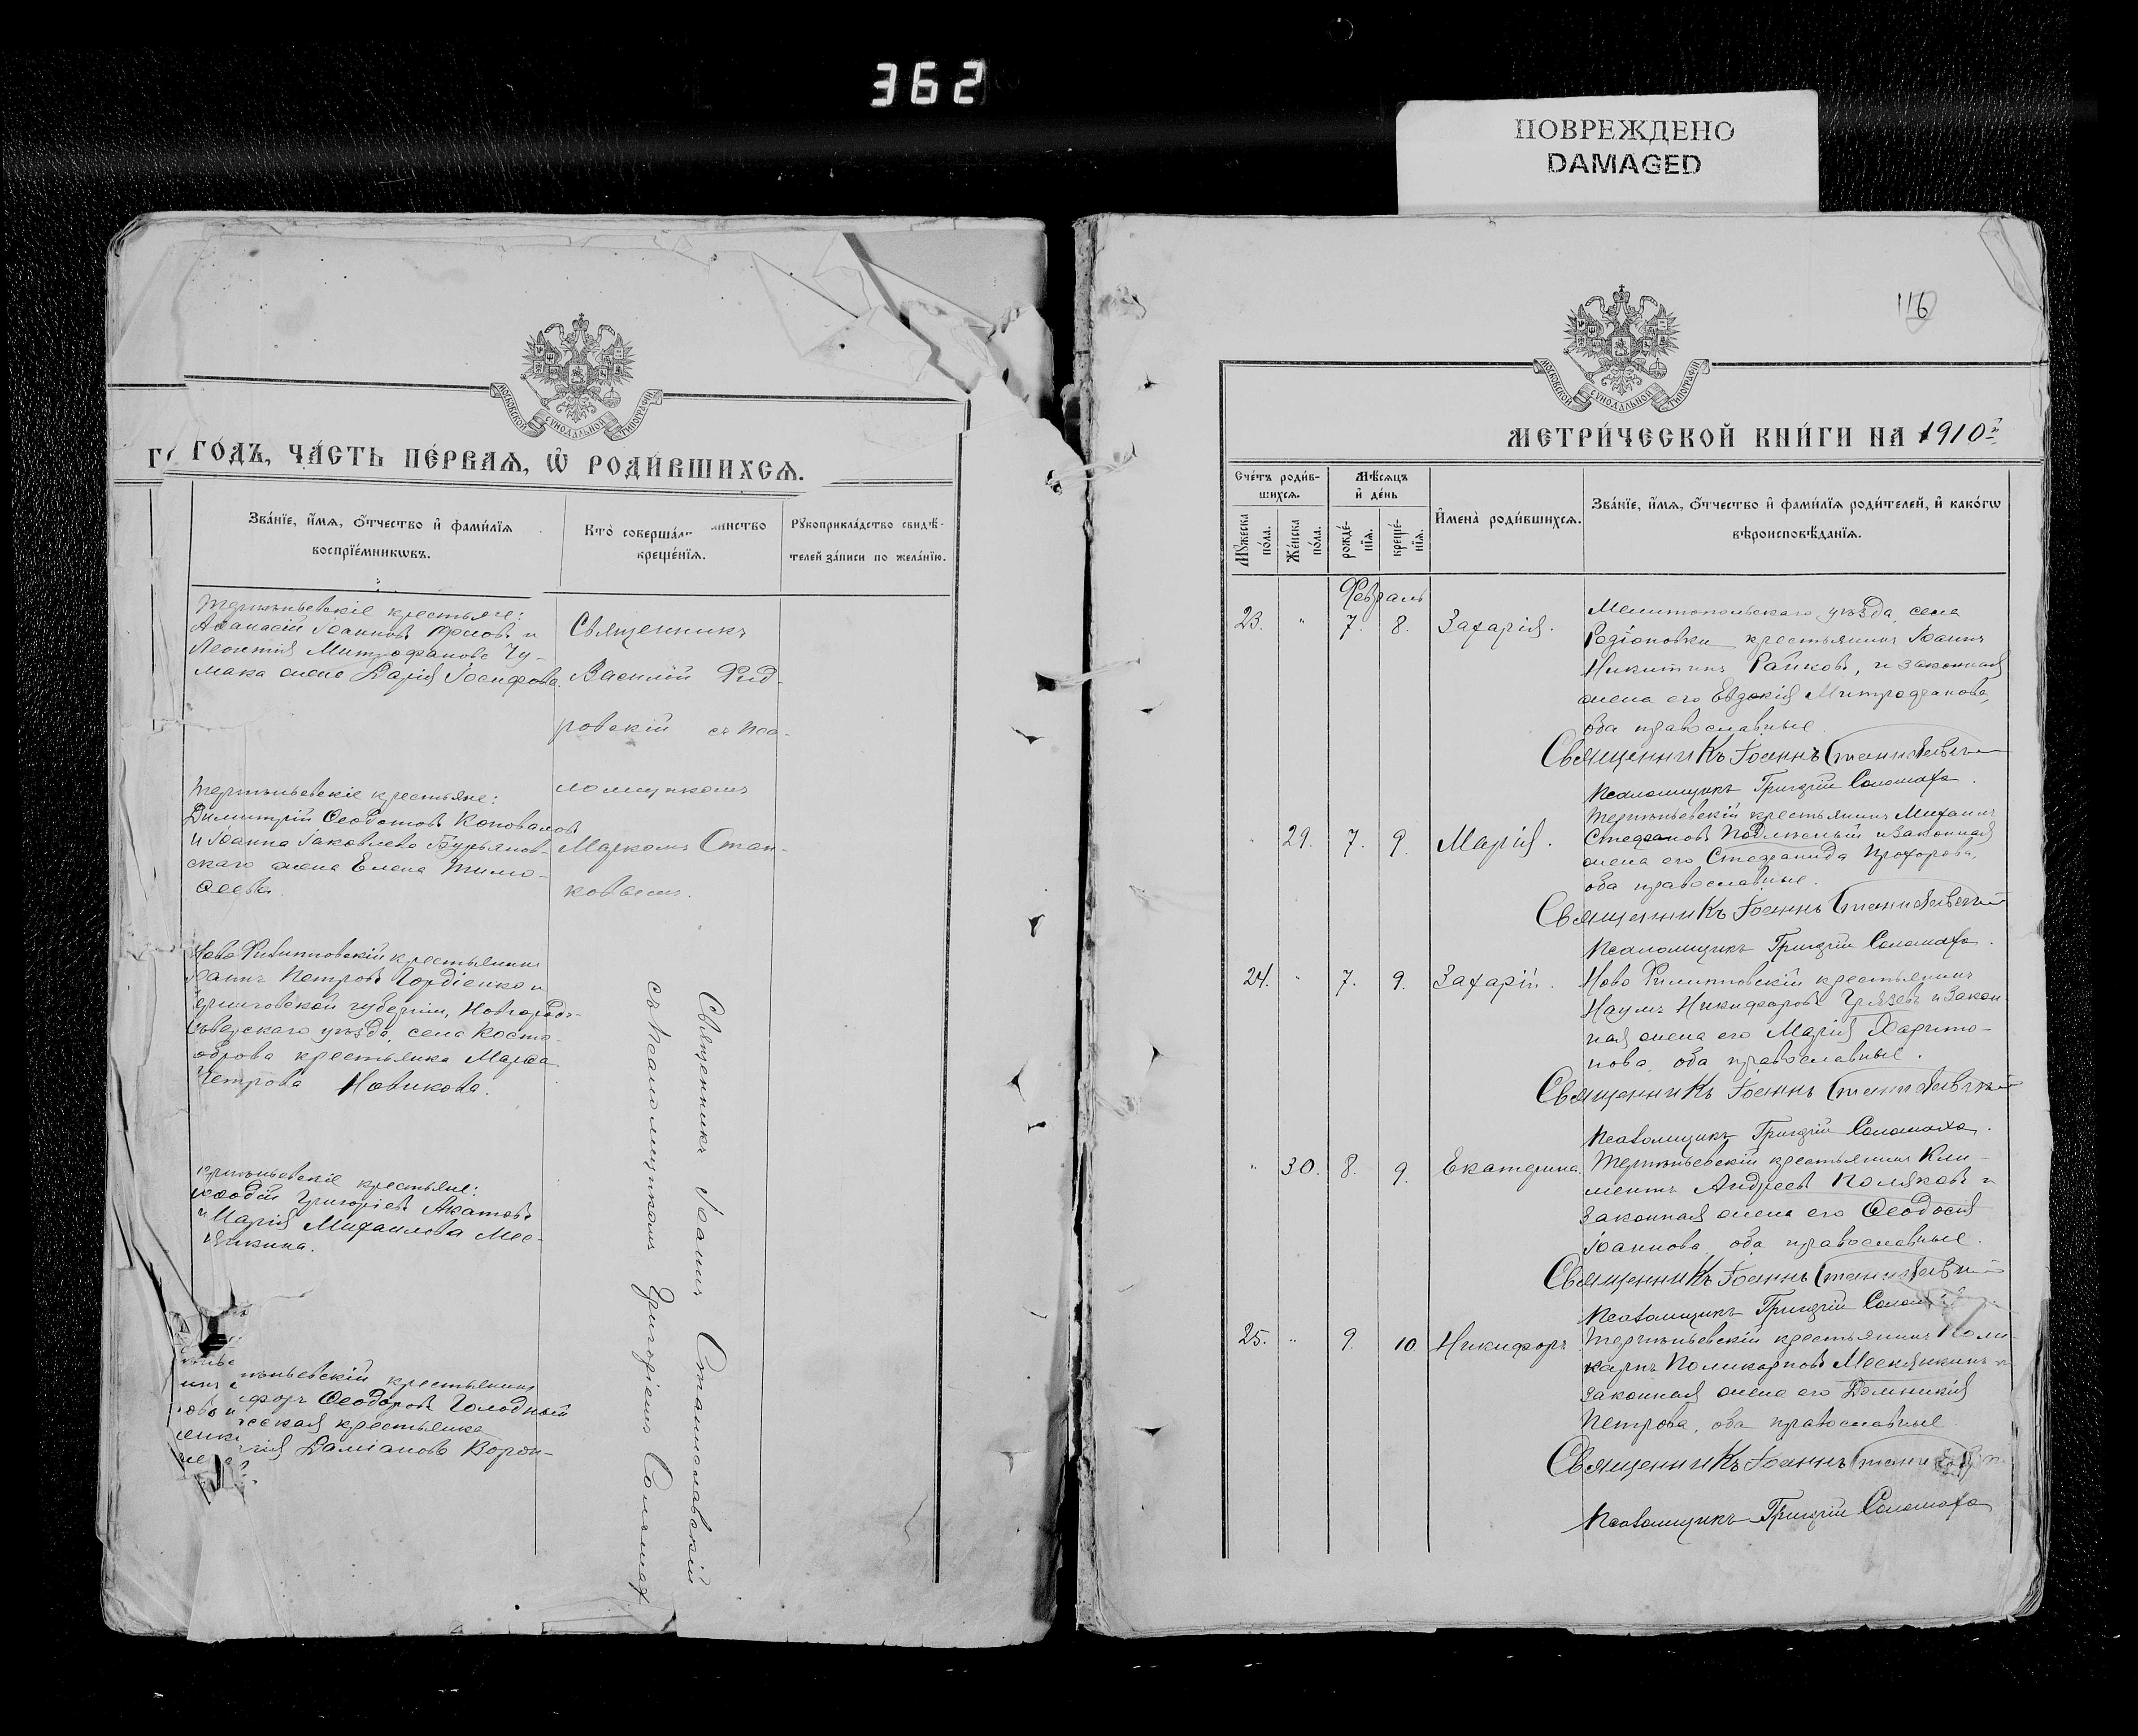 362
ПОВРЕЖДЕНО
DAMAGED
МОСКОВСКОЙ СѴНОДАЛЬНОЙ ТИПОГРАФІИ
ГО́ДЪ, ЧА́СТЬ ПЕ́РВАѦ, Ѽ РОДИ́ВШИХСѦ.
Зва́нїе, и́мѧ, ѻ҆́тчество и҆ фами́лїѧ
воспрїе́мникѡвъ.
Кто̀ соверша́лъ
инство
креще́нїѧ.
Рꙋкоприкла́дство свидѣ́-
телей за́писи по жела́нїю.
Терпѣньевскіе крестьяне:
Аѳанасій Іоанновъ и
Леонтія Митрофанова Чу-
мака жена Дарія Іосифова.
Священникъ
Василій Фид-
ровскій съ пса-
ломщикомъ
Маркомъ Стан-
ковымъ.
Терпѣньевскіе крестьяне:
Димитрій Ѳеодотовъ Коноваловъ
и Іоанна Іаковлева Бурьянов-
скаго жена Елена Тимо-
ѳеева.
Ново Филипповскій крестьянинъ
Іоаннъ Петровъ Гордіенко и
Черниговской губерніи, Новгородъ-
Сѣверскаго уѣзда, села Косто-
боброва крестьянка Марѳа
Петрова Новикова.
крестьяне:
Григоріевъ Акатовъ
и Марія Михаилова Мос-
якина.
пѣньевскій крестьянинъ
форъ Ѳеодоровъ Голодный
ская крестьянка
рія Даміанова Ворон-
Священникъ Іоаннъ Станиславскій
съ псаломщикомъ Григоріемъ Соломах
116
МОСКОВСКОЙ СѴНОДАЛЬНОЙ ТИПОГРАФІИ
МЕТРИ́ЧЕСКОЙ КНИ́ГИ НА 1910й
Сче́тъ роди́в-
шихсѧ.
Мꙋ́жеска по́ла.
Же́нска по́ла.
Мѣ́сѧцъ
и҆ де́нь
рожде́-нїѧ.
креще́-нїѧ.
И҆мена̀ роди́вшихсѧ.
Зва́нїе, и҆́мѧ, ѻ҆́тчество и҆ фами́лїѧ роди́телей, и҆ како́гѡ
вѣроисповѣ́данїѧ.
Февраль
23. " 7. 8. Захарія.
Мелитопольскаго уѣзда, села
Родіоновки крестьянинъ Іоаннъ
Никитинъ Райковъ, и законная
жена его Евдокія Митрофанова,
оба православные.
Священникъ Іоаннъ Станиславскій
Псаломщикъ Григорій Соломаха.
" 29. 7. 9. Марія.
Терпѣньевскій крестьянинъ Михаилъ
Стефановъ Подлѣсный и законная
жена его Стефанида Прохорова,
оба православные.
Священникъ Іоаннъ Станиславскій
Псаломщикъ Григорій Соломаха.
24. " 7. 9. Захарій.
Ново Филипповскій крестьянинъ
Наумъ Никифоровъ Грязевъ и закон-
ная жена его Марія Харито-
нова, оба православные.
Священникъ Іоаннъ Станиславскій
Псаломщикъ Григорій Соломаха.
" 30. 8. 9. Екатерина
Терпѣньевскій крестьянинъ Кли-
ментъ Андреевъ Поляковъ и
законная жена его Ѳеодосія
Іоаннова, оба православные.
Священникъ Іоаннъ Станиславскій
Псаломщикъ Григорій Солом
25. " 9. 10 Никифоръ
Терпѣньевскій крестьянинъ Поли-
карпъ Поликарповъ Москякинъ и
законная жена его Домникія
Петрова, оба православные
Священникъ Іоаннъ
Псаломщикъ Григорій Соломаха